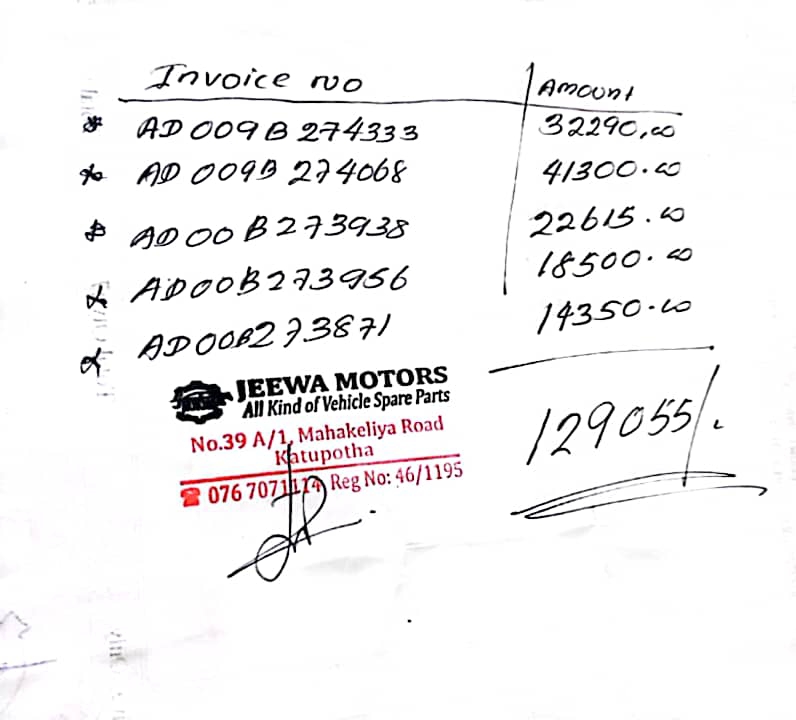 Invoice no Amount
* AD 009B 274333 32290.00
* AD 009B 274068 41300.00
* AD 00B273938 22615.00
* AD00B273956 18500.00
* AD00B273871 14350.00
JEEWA MOTORS
All Kind of Vehicle Spare Parts
129055/.
No.39 A/1, Mahakeliya Road
Katupotha
☎ 076 7071114 Reg No: 46/1195